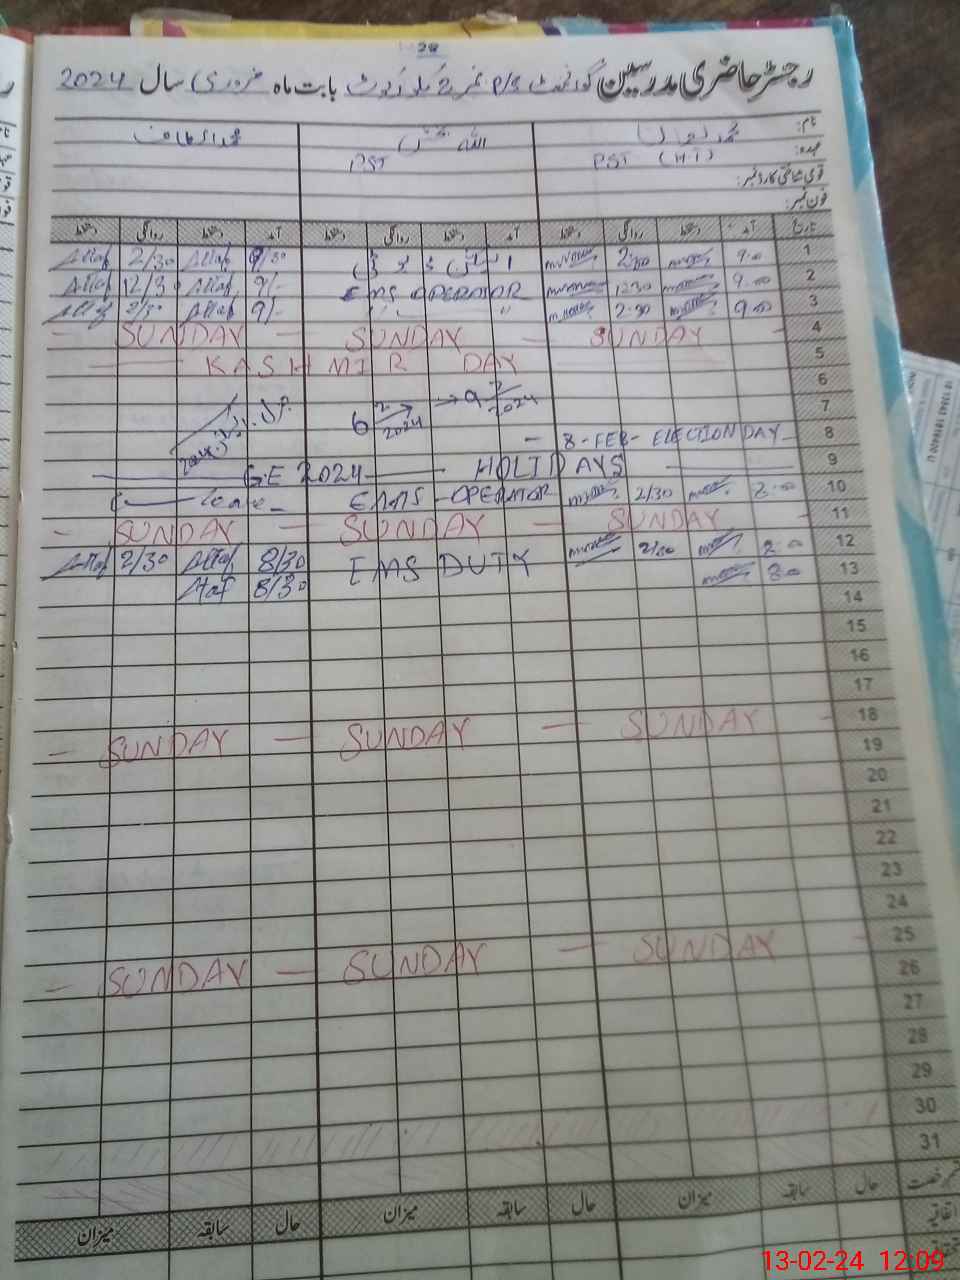 28
رجسٹر حاضری مدرسین گورنمنٹ P/S نمبر 2 بابت ماہ فروری سال 2024
نام: محمد اللہ محمد الطاف
عہدہ: PST (H.T) PST
قومی شناختی کارڈ نمبر:
فون نمبر:
تاریخ آمد دستخط روانگی دستخط آمد دستخط روانگی دستخط آمد دستخط روانگی دستخط
Altaf 2/30 Altaf 9/30 2:30 9:00 1
Altaf 12/30 Altaf 9/- EMS OPERATOR 12:30 9:00 2
Altaf 2/30 Altaf 9/- " " 2:30 9:00 3
SUNDAY - SUNDAY - SUNDAY 4
KASHMIR DAY 5
6
6 2/2024 → 9 2/2024 7
- 8-FEB- ELECTION DAY- 8
G.E 2024 HOLIDAYS 9
Leave- EMS OPERATOR 2/30 8:00 10
- SUNDAY - SUNDAY - SUNDAY - 11
Altaf 2/30 Altaf 8/30 EMS DUTY 2/30 8:00 12
Altaf 8/30 8:00 13
14
15
16
17
- SUNDAY - SUNDAY - SUNDAY - 18
19
20
21
22
23
24
- SUNDAY - SUNDAY - SUNDAY - 25
26
27
28
29
30
31
حال سابقہ میزان حال سابقہ میزان حال سابقہ میزان
اتفاقیہ
13-02-24 12:09